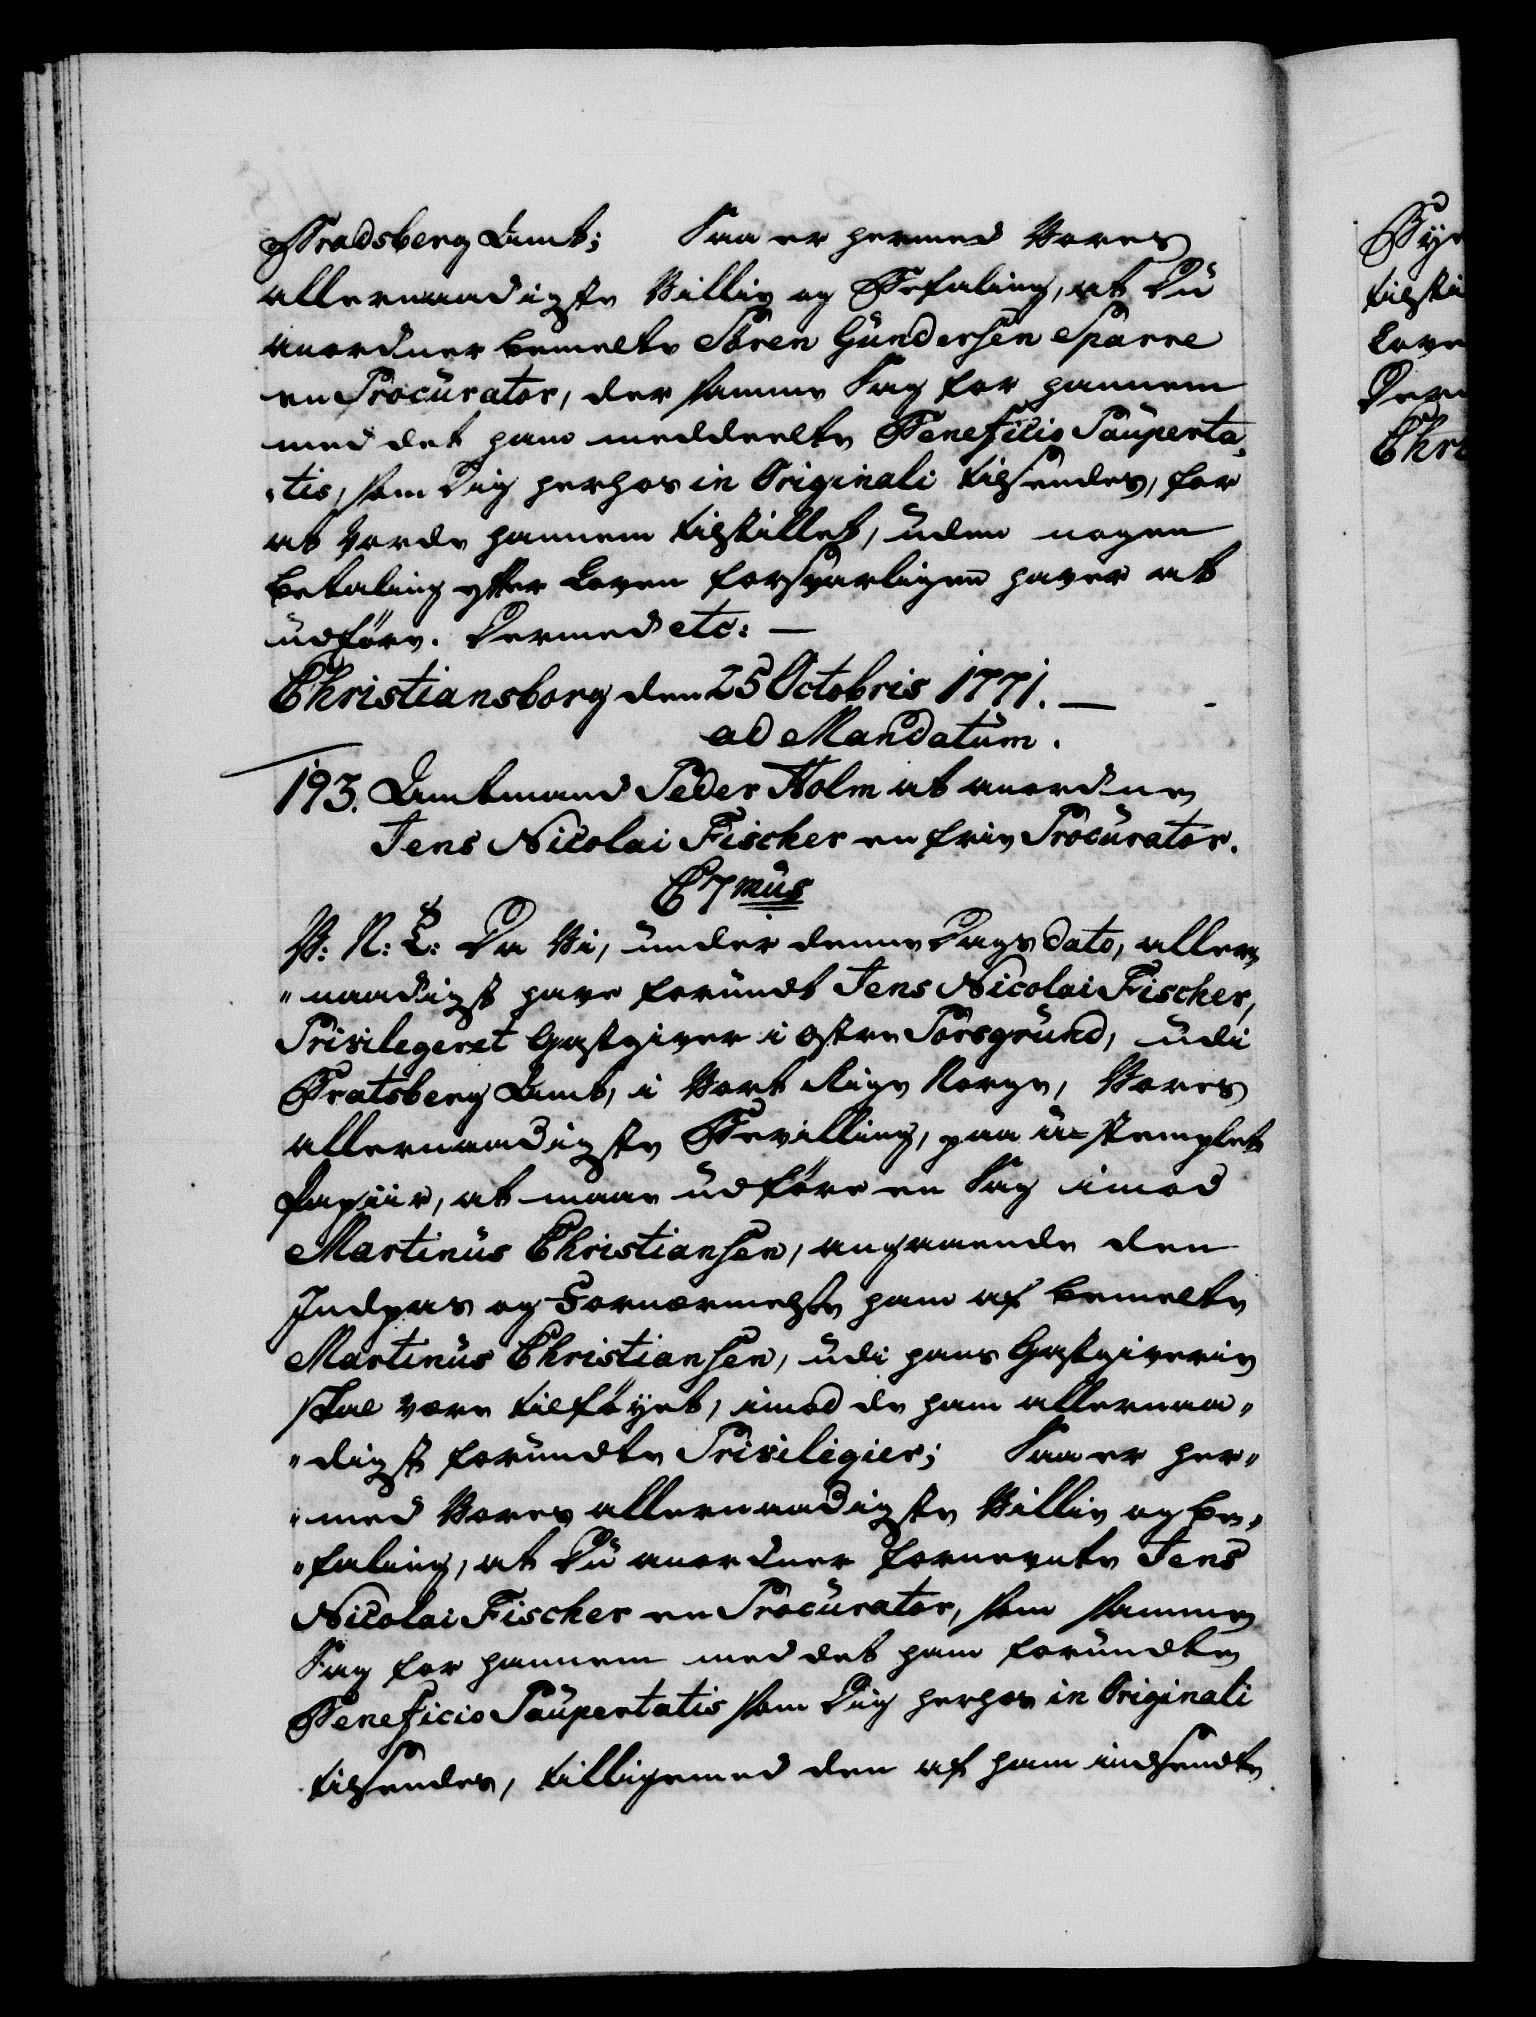 Bradsberg Amt; Saa er hermed Vores
allernaadigste Villie og Befaling, at Du
anordner bemelte Sören Gundersen Sparre
en Procurator, der samme Sag for hannem
med det ham meddeelte Beneficio Pauperta„
„tis, som Dig herhos in Originali tilsendes, for
at vorde hannem tilstillet, uden nogen
betaling efter Loven forsvarligen haver at
udföre. Dermed etc: —
Christiansborg den 25 Octobris 1771. —
ad Mandatum.
193. Amtmand Peder Holm at anordne
Jens Nicolai Fischer en frie Procurator.
C7mus
V: N: T: Da Vi, under denne Dags Dato, aller„
„naadigst have forundt Jens Nicolai Fischer,
Privilegeret Gastgiver i Östre Porsgrund, udi
Bratsberg Amt, i Vort Rige Norge, Vores
allernaadigste Bevilling, paa u-stemplet
Papiir, at maae udföre en Sag imod
Martinus Christiansen, angaaende den
Indpas og Fornærmelse ham af bemelte
Martinus Christiansen, udi hans Gastgiverie
skal være tilföyet, imod de ham allernaa„
„digst forundte Privilegier; Saa er her„
„med Vores allernaadigste Villie og Be„
„faling, at Du anordner fornevnte Jens
Nicolai Fischer en Procurator, som samme
Sag for hannem med det ham forundte
Beneficio Paupertatis som Dig herhos in Originali
tilsendes, tilligemed den af ham indsendte